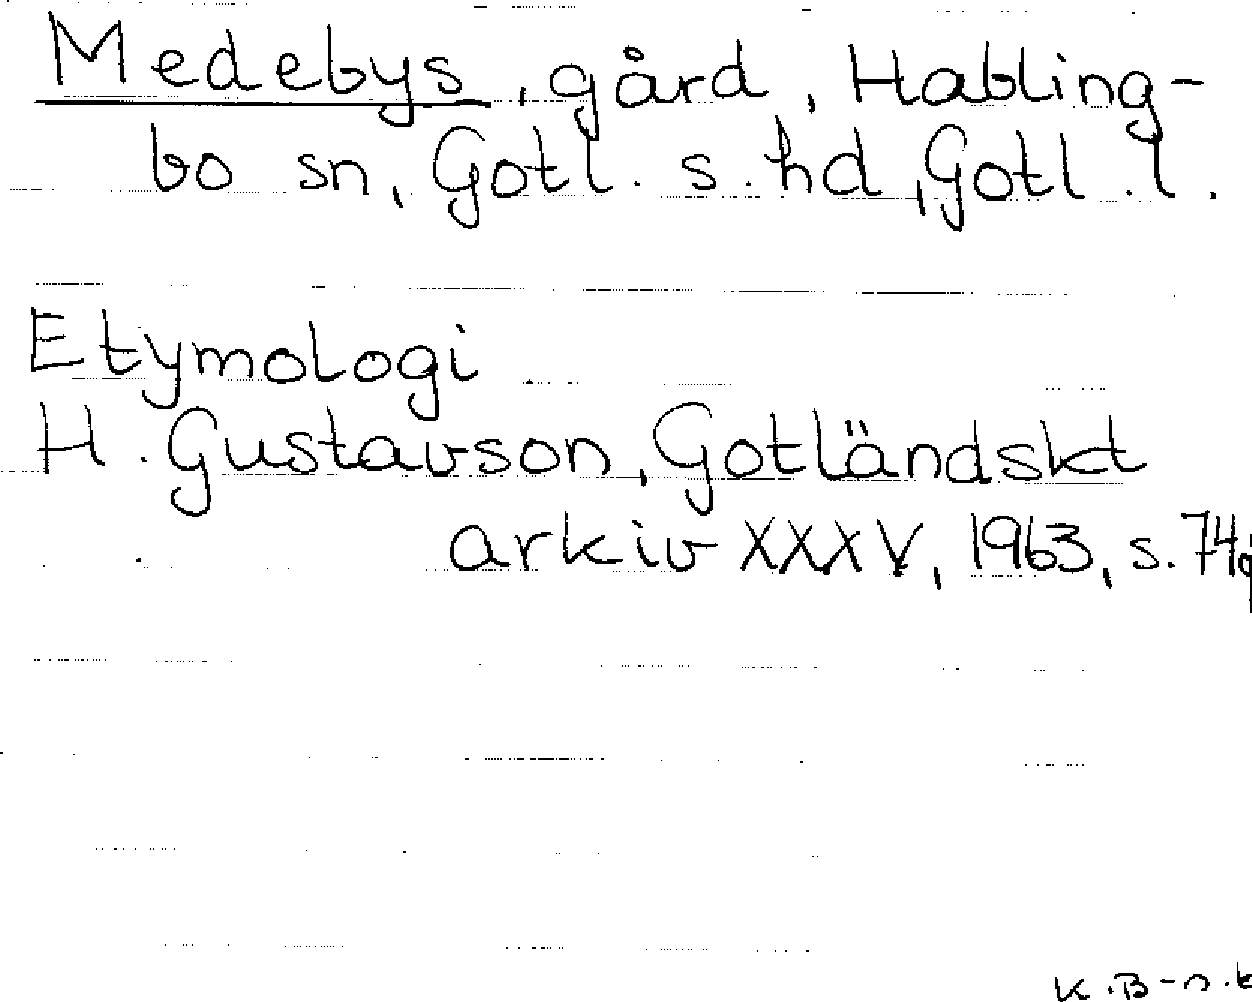 Medebys, gård, Habling-
bo sn, Gotl. s. hd, Gotl. l.
Etymologi
H. Gustavson, Gotländskt
arkiv XXXV, 1963, s. 74
K.B-n.